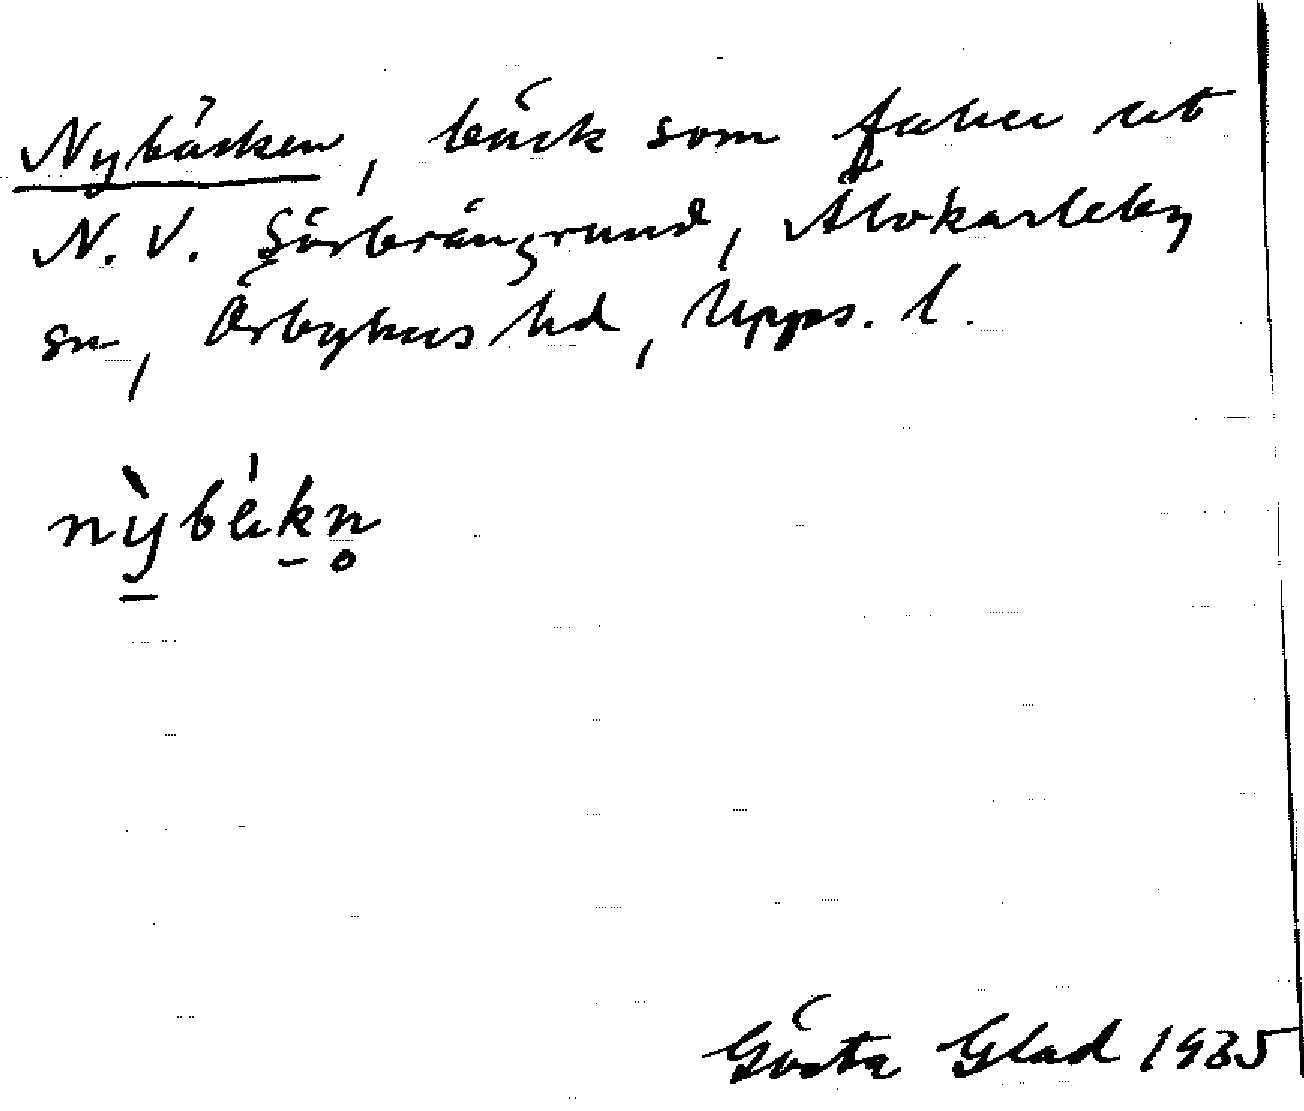 Nybäcken, bäck som faller ut
N.V. Sörbrängrund, Älvkarleby
sn, Örbyhus hd, Upps. l.
nỳbèkn̥
Gösta Glad 1935